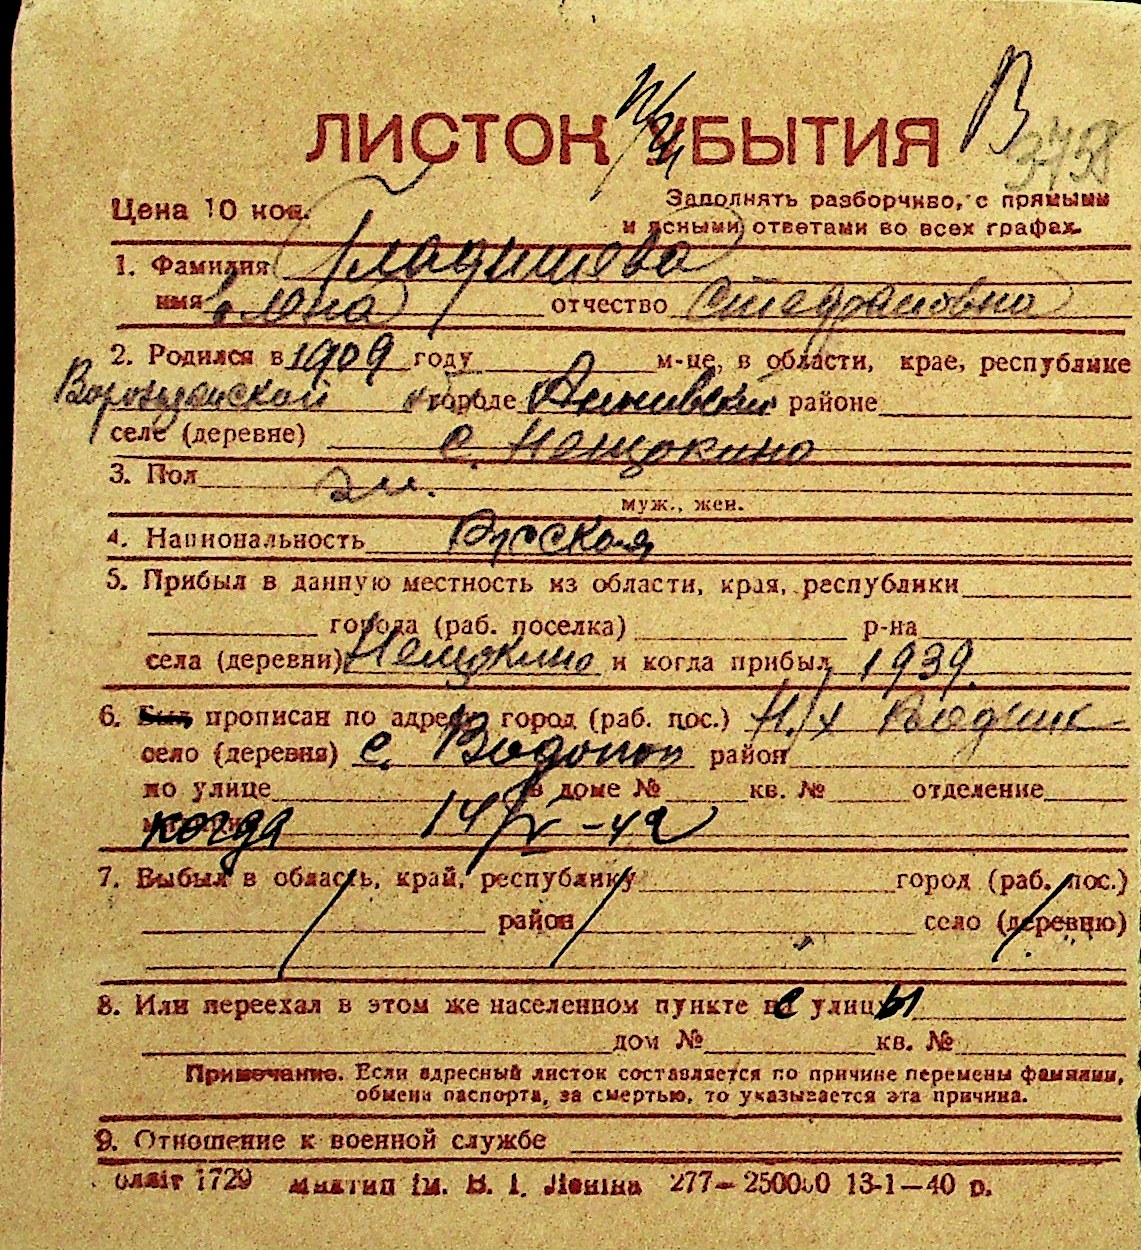 В
ЛИСТОК УБЫТИЯ
3758
Цена 10 коп.
Заполнять разборчиво, с прямыми
и ясными ответами во всех графах.
1. Фамилия Гладишева
имя Елена отчество Стефановна
2. Родился в 1909 году м-це, в области, крае, республике
городе районе
селе (деревне) с. Нещокино
3. Пол ж.
муж., жен.
4. Национальность Русская
5. Прибыл в данную местность из области, края, республики
города (раб. поселка) р-на
села (деревни) Нещокино и когда прибыл 1939
6. Был прописан по адресу город (раб. пос.) Н/х Водник
село (деревня) с. Водопой район
по улице в доме № кв. № отделение
когда 14/V-42
7. Выбыл в область, край, республику город (раб. пос.)
район село (деревню)
8. Или переехал в этом же населенном пункте с улицы
дом № кв. №
Примечание. Если адресный листок составляется по причине перемены фамилии,
обмена паспорта, за смертью, то указывается эта причина.
9. Отношение к военной службе
Облліт 1729 Миктип ім. В. І. Леніна 277—250000 13-1—40 р.